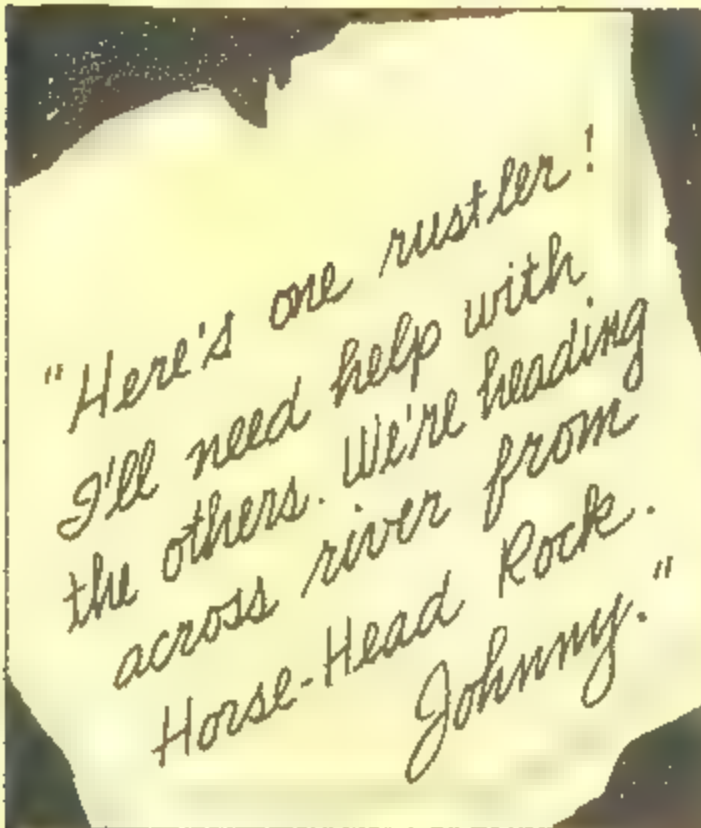 "Here's one rustler!
I'll need help with
the others. We're heading
across river from
Horse-Head Rock.
Johnny."